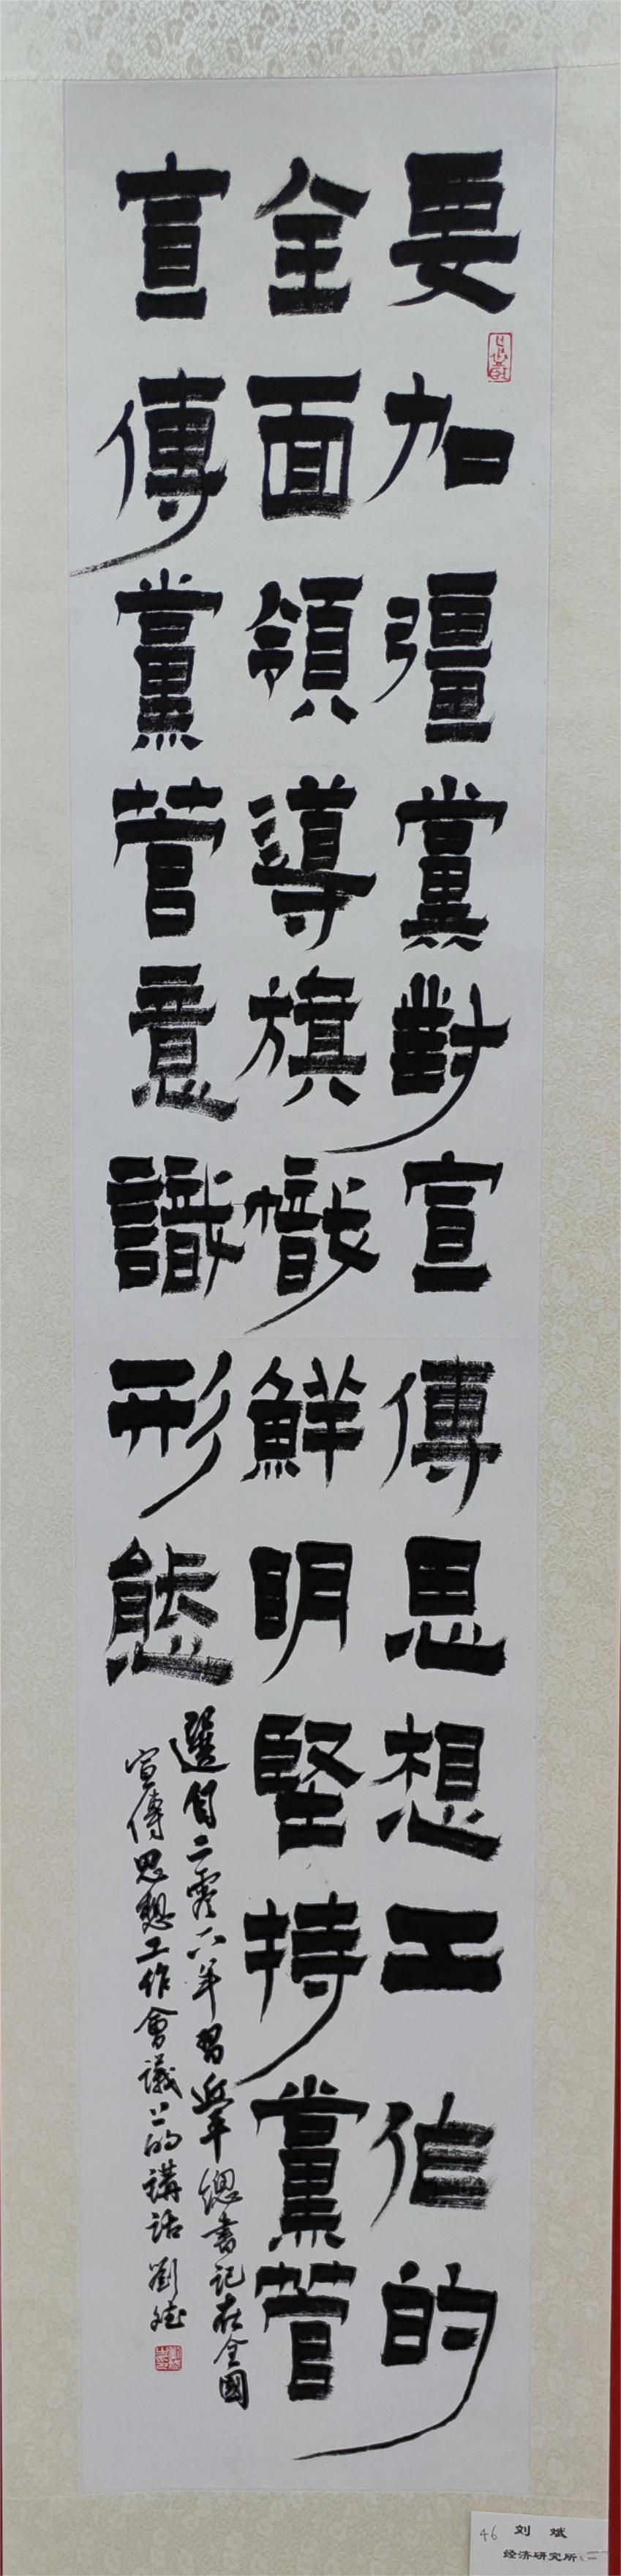 要加彊黨對宣傳思想工作的
全面領導旗幟鮮明堅持黨管
宣傳黨管意識形態
選自二零一八年習近平總書記在全國
宣傳思想工作會議上的講話 劉斌
46 刘 斌
经济研究所